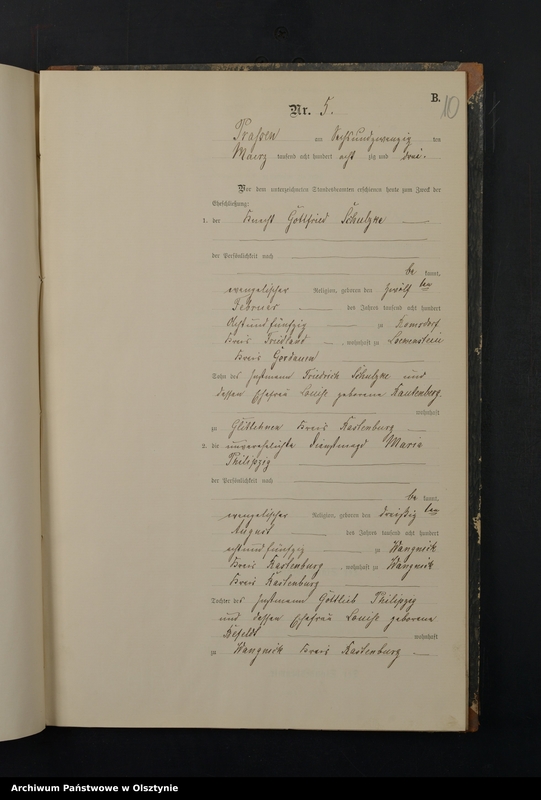 B.
10
Nr. 5.
am Sechsundzwanzig ten
Maerz tausend acht hundert acht zig und drei.
Vor dem unterzeichneten Standesbeamten erschienen heute zum Zweck der
Eheschließung:
1. der Knecht Gottfried Schulzke
der Persönlichkeit nach
be kannt,
evangelischer Religion, geboren den zwölf ten
Februar des Jahres tausend acht hundert
Achtundfünfzig zu Domsdorf
Kreis Friedland, wohnhaft zu Loewenstein
Kreis Gerdauen
Sohn des Instmann Friedrich Schulzke und
dessen Ehefrau Louise geborene Kautenberg.
wohnhaft
zu Glittehnen Kreis Rastenburg
2. die unverehelichte Dienstmagd Maria
Philipzig
der Persönlichkeit nach
be kannt,
evangelischer Religion, geboren den dreißig ten
August des Jahres tausend acht hundert
achtundfünfzig zu Wangnick
Kreis Rastenburg, wohnhaft zu Wangnick
Kreis Rastenburg
Tochter des Instmann Gottlieb Philipzig
und dessen Ehefrau Louise geborene
wohnhaft
zu Wangnick Kreis Rastenburg
Archiwum Państwowe w Olsztynie